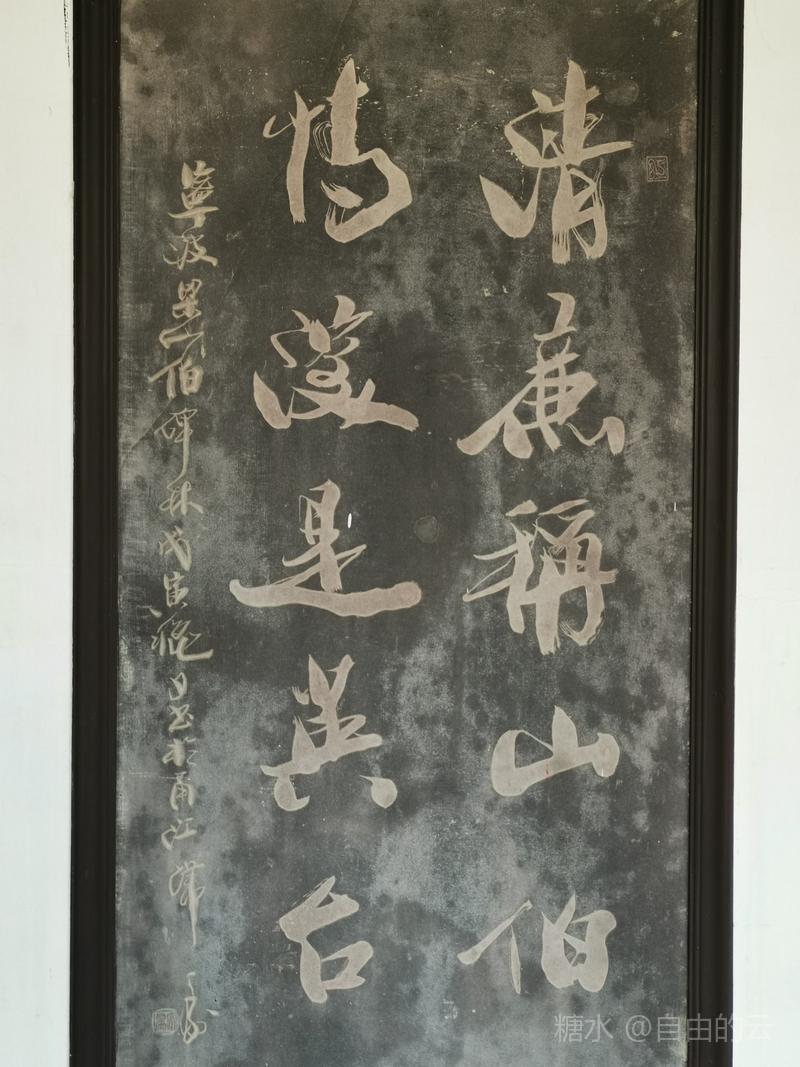 清廉稱山伯
情愛是英台
寧波梁山伯碑林戊寅穐日書於甬江
糖水 @自由的云